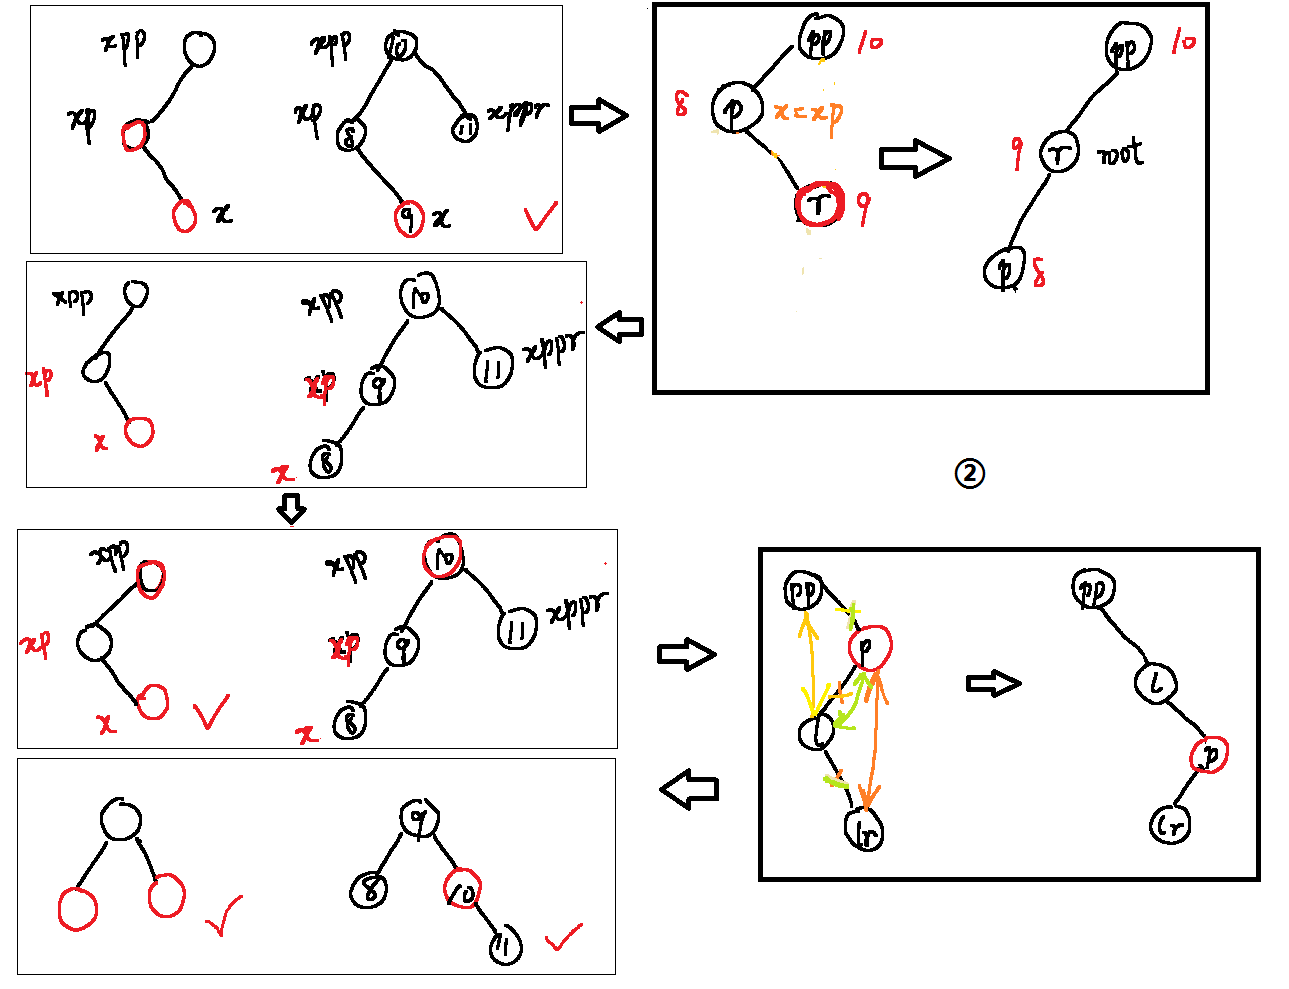 xpp
xp
x
xpp 10
xp 8
11 xppr
9 x
pp 10
8 p x=xp
r 9
pp 10
9 r root
p 8
xpp
xp
x
xpp 10
xp 9
11 xppr
x 8
②
xpp
xp
x
xpp 10
xp 9
11 xppr
x 8
pp
p
l
lr
pp
l
p
lr
9
8 10
11